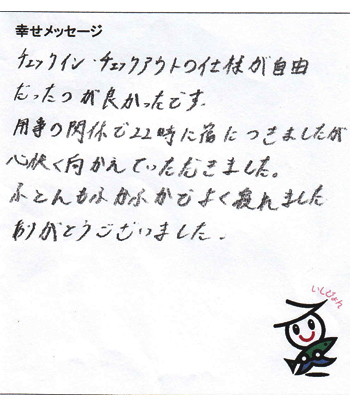 幸せメッセージ
チェックイン・チェックアウトの仕様が自由
だったつが良かったです.
用事の関休で22時に宿につきましたが
心快く向かえていただきました。
ふとんもふかふかでよく寝れました
ありがとうございました.
いしぴょん